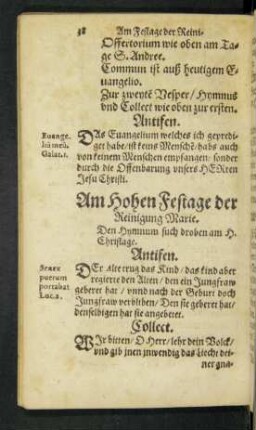 38 Am Festage der Reini-
Offertorium wie oben am Ta-
ge S. Andree.
Commun ist auß heutigem E-
uangelio.
Zur zweytē Vesper / Hymnus
vnd Collect wie oben zur ersten.
Antifen.
Euange-
liū meū.
Galat. 1.
DAs Euangelium welches ich gepredi-
get habe / ist keins Menschē / habs auch
von keinem Menschen empfangen / sonder
durch die Offenbarung vnsers HERren
Jesu Christi.
Am Hohen Festage der
Reinigung Marie.
Den Hymnum such droben am H.
Christage.
Antifen.
Senex
puerum
portabat
Luc. 2.
DEr alte trug das Kind / das kind aber
regierte den Alten / den ein Jungfraw
geberet hat / vnnd nach der Geburt doch
Jungfraw verblieben / Den sie geberet hat /
denselbigen hat sie angebetet.
Collect.
WIr bitten / O Herr / lehr dein Volck /
vnd gib jnen inwendig das Liecht dei-
ner gna-